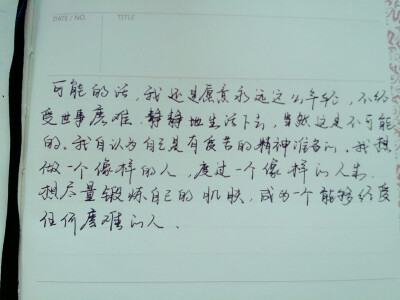 DATE / NO.
TITLE
可能的话，我还是愿意永远这么年轻，不经
受世事磨难.静静地生活下去，当然这是不可能
的。我自认为自己是有受苦的精神准备的、我想
做一个像样的人，度过一个像样的人生.
想尽量锻炼自己的肌肤，成为一个能够经受
任何磨难的人.